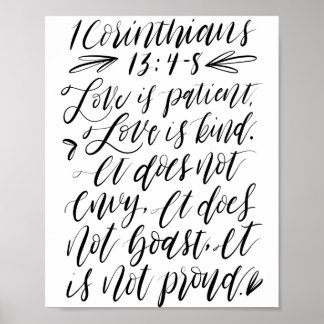 1 Corinthians
13:4-8
Love is patient,
Love is kind.
It does not
envy, It does
not boast, It
is not proud.